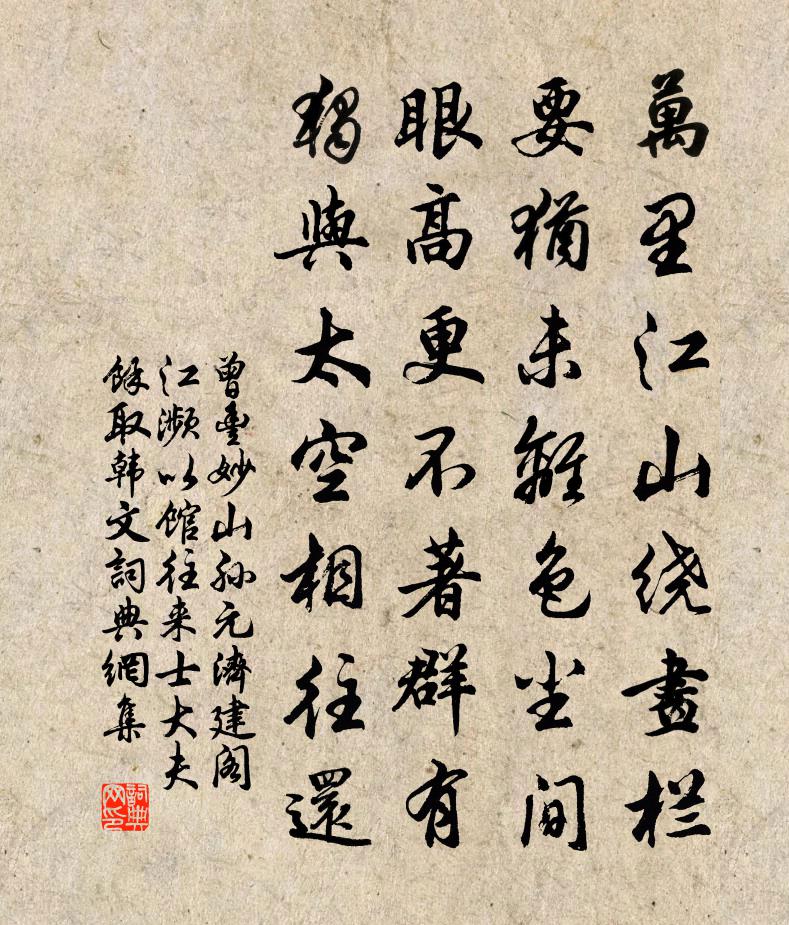 萬里江山绕畫栏
要猶未離色尘间
眼高更不著群有
獨與太空相往還
曾豐妙山孙元濟建阁
江濒以馆往来士大夫
餘取韩文詞典網集
詞典网印